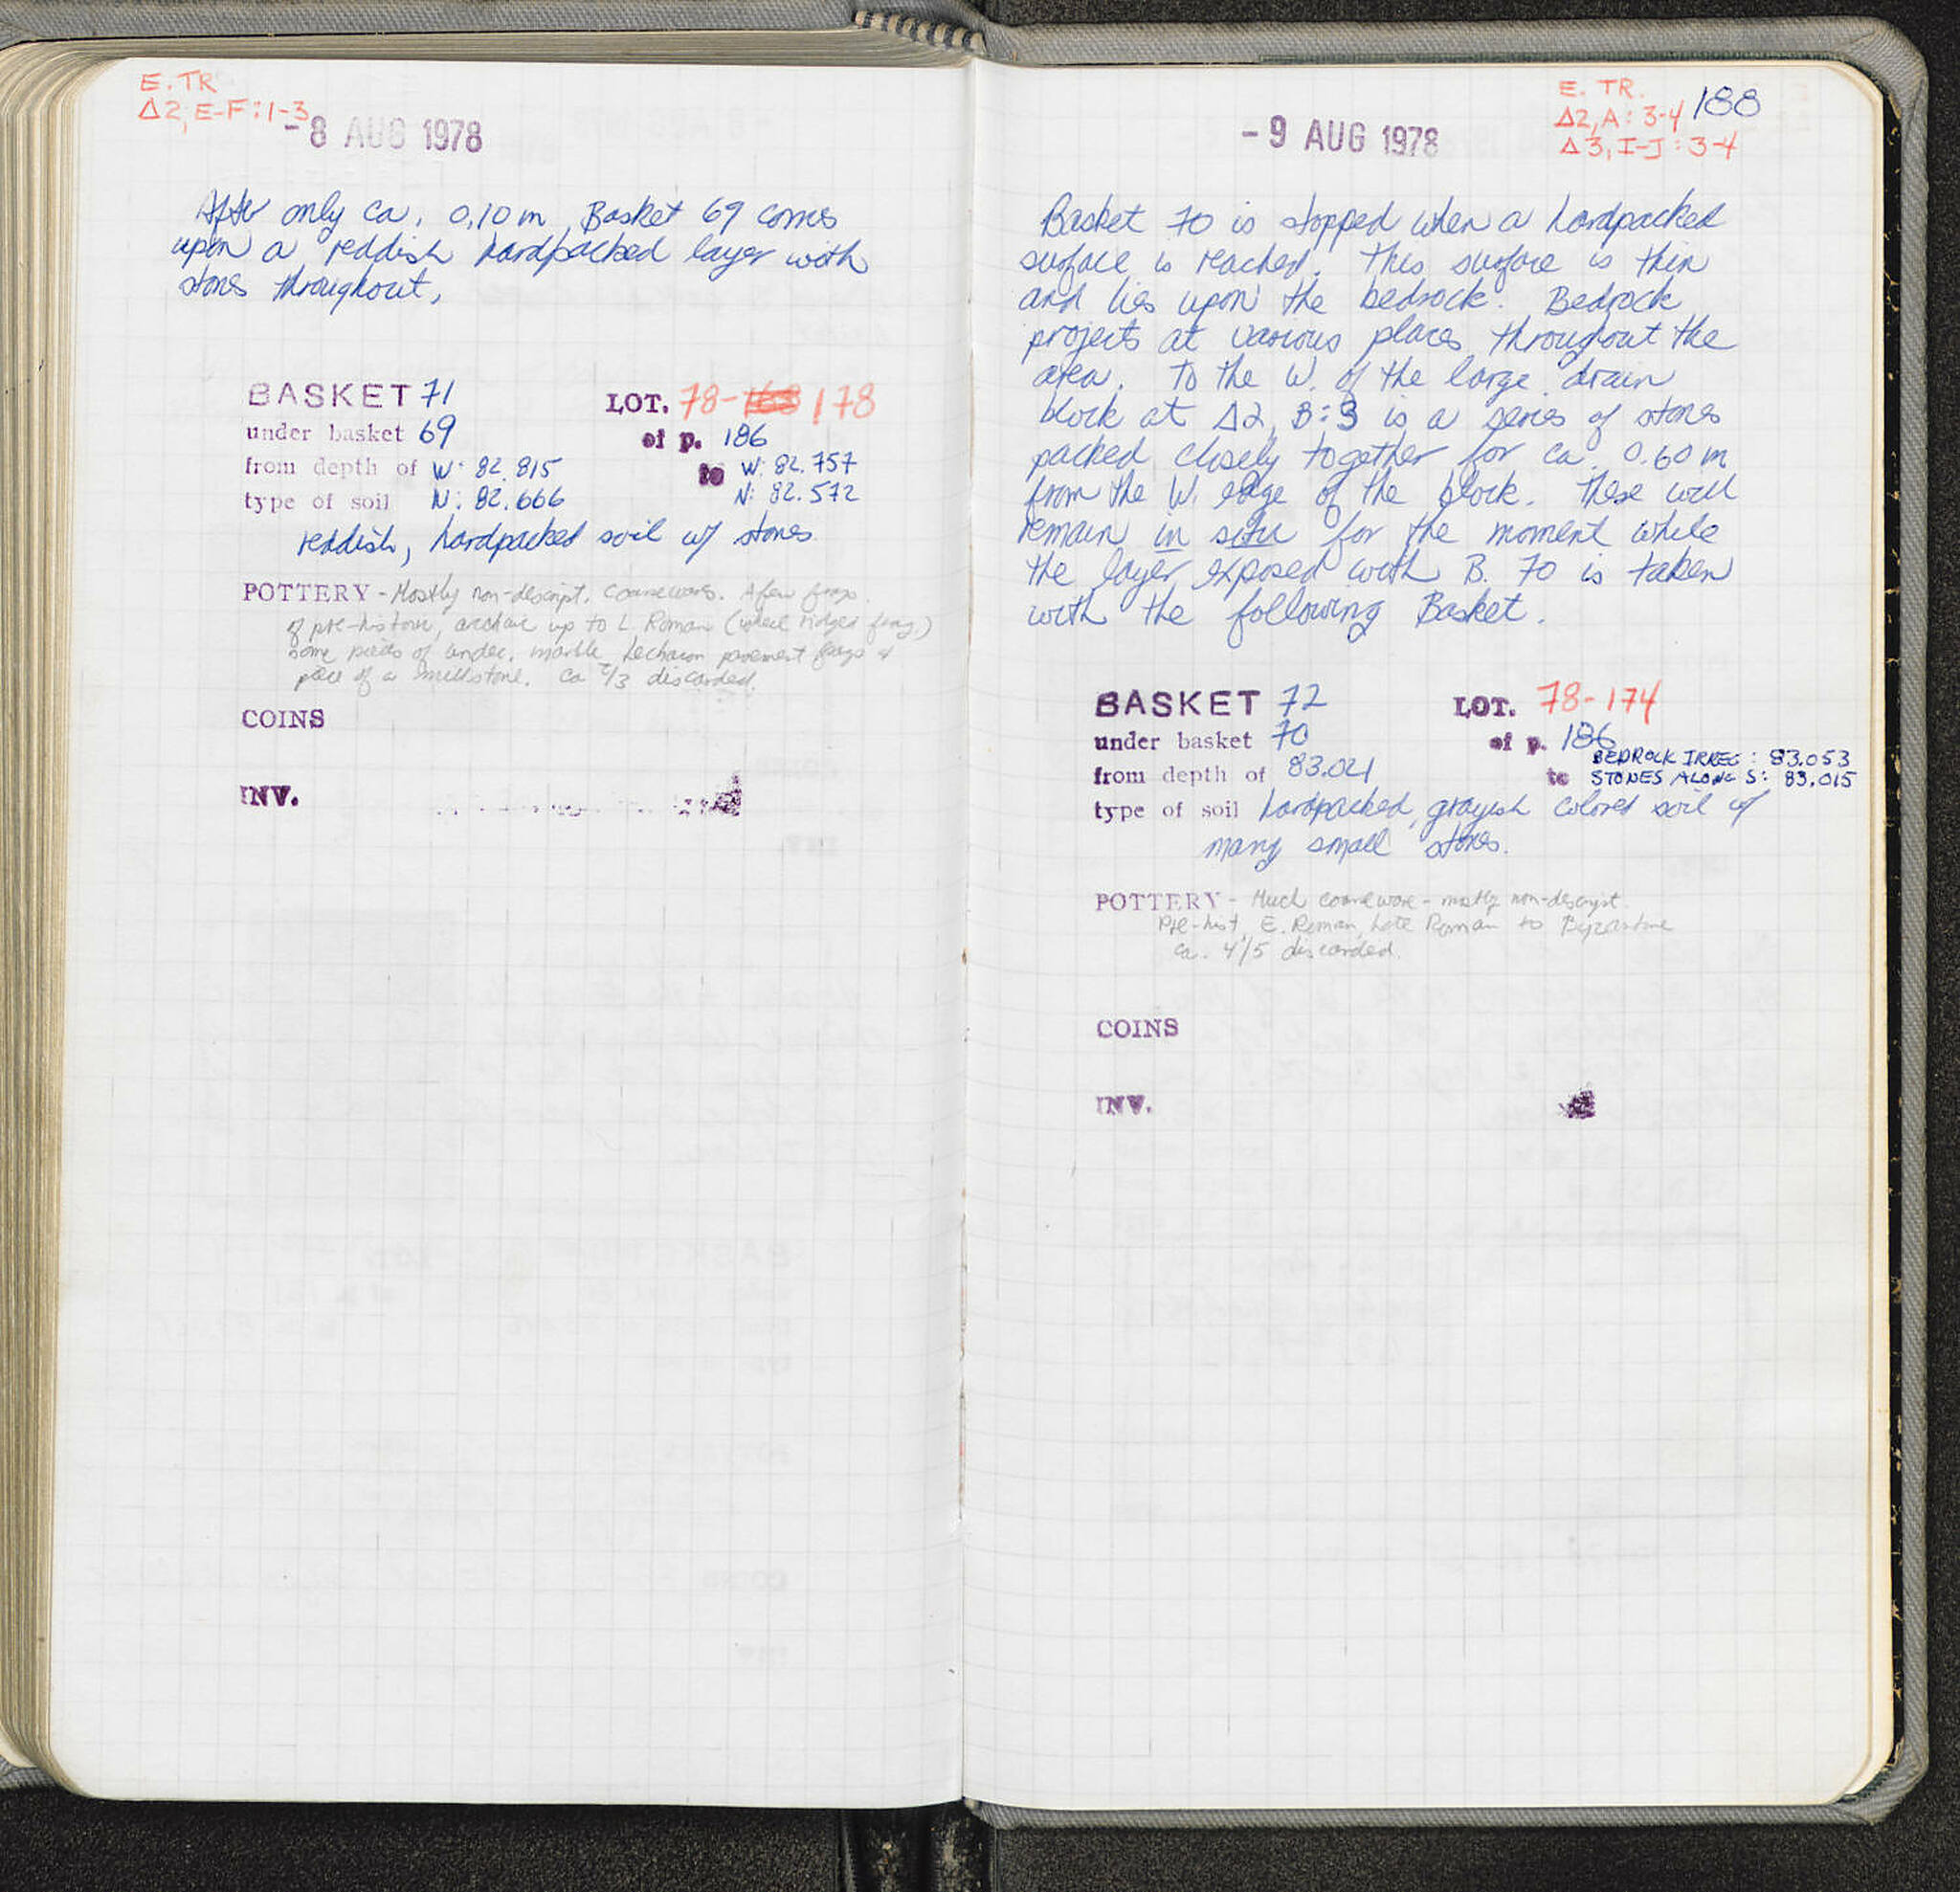 E. TR
Δ2, E-F:1-3
- 8 AUG 1978
After only ca. 0.10 m Basket 69 comes
upon a reddish hardpacked layer with
stones throughout.
BASKET 71 LOT. 78-168 178
under basket 69 of p. 186
from depth of W: 82.815 to W: 82.757
type of soil N: 82.666 N: 82.572
reddish, hardpacked soil w/ stones
POTTERY - Mostly non-descript. coarseware. A few frags.
of pre-historic, archaic up to L. Roman (wheel ridged frag.)
some pieces of marble, Lechaion pavement frags &
piece of a millstone. Ca 2/3 discarded.
COINS
INV.
E. TR.
188
Δ2, A: 3-4
Δ3, I-J: 3-4
- 9 AUG 1978
Basket 70 is stopped when a hardpacked
surface is reached. This surface is thin
and lies upon the bedrock. Bedrock
projects at various places throughout the
area. To the W. of the large drain
block at Δ2, B:3 is a series of stones
packed closely together for ca. 0.60 m
from the W. edge of the block. These will
remain in situ for the moment while
the layer exposed with B. 70 is taken
with the following Basket.
BASKET 72 LOT. 78-174
under basket 70 of p. 186
BEDROCK IRREG: 83.053
from depth of 83.021 to STONES ALONG S: 83.015
type of soil hardpacked, grayish colored soil w/
many small stones.
POTTERY - Much coarseware - mostly non-descript.
Pre-hist, E. Roman, Late Roman to Byzantine
ca. 4/5 discarded.
COINS
INV.